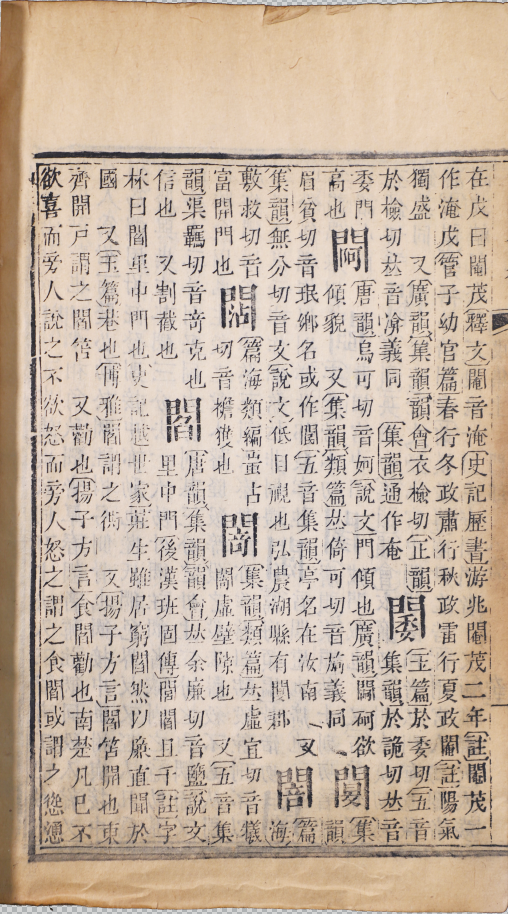 在戌曰閹茂釋文閹音淹史記歷書游兆閹茂二年註閹茂一
作淹戊管子幼官篇春行冬政肅行秋政雷行夏政閹註陽氣
獨盛也又廣韻集韻韻會衣檢切正韻
於檢切𠀤音渰義同集韻通作庵閿玉篇於委切五音
委門閜唐韻烏可切音妸說文門傾也廣韻閜砢欲
高也傾貌又集韻類篇𠀤倚可切音旑義同閺集韻
眉貧切音珉鄉名或作閿五音集韻亭名在汝南又篇
集韻無分切音文說文低目視也弘農湖縣有閺鄉海
敷救切音
富開門也篇海類編蚩占切音襜
韻渠羈切音奇克也閻虛壁隙也又五音集
信也又割截也閻里中門後漢班固傳閭閻且千註字
林曰閻里中門也史記越世家莊生雖居窮閻然以廉直聞於
國又玉篇巷也博雅閻謂之衖又揚子方言閻笘開也東
齊開戸謂之閻笘又勸也揚子方言食閻勸也南楚凡巳不
欲喜而旁人說之不欲怒而旁人怒之謂之食閻或謂之慫慂